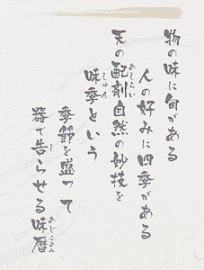 物の味に旬がある
人の好みに四季がある
天の配剤自然の妙技を
味季という
季節を盛って
器で告らせる味暦